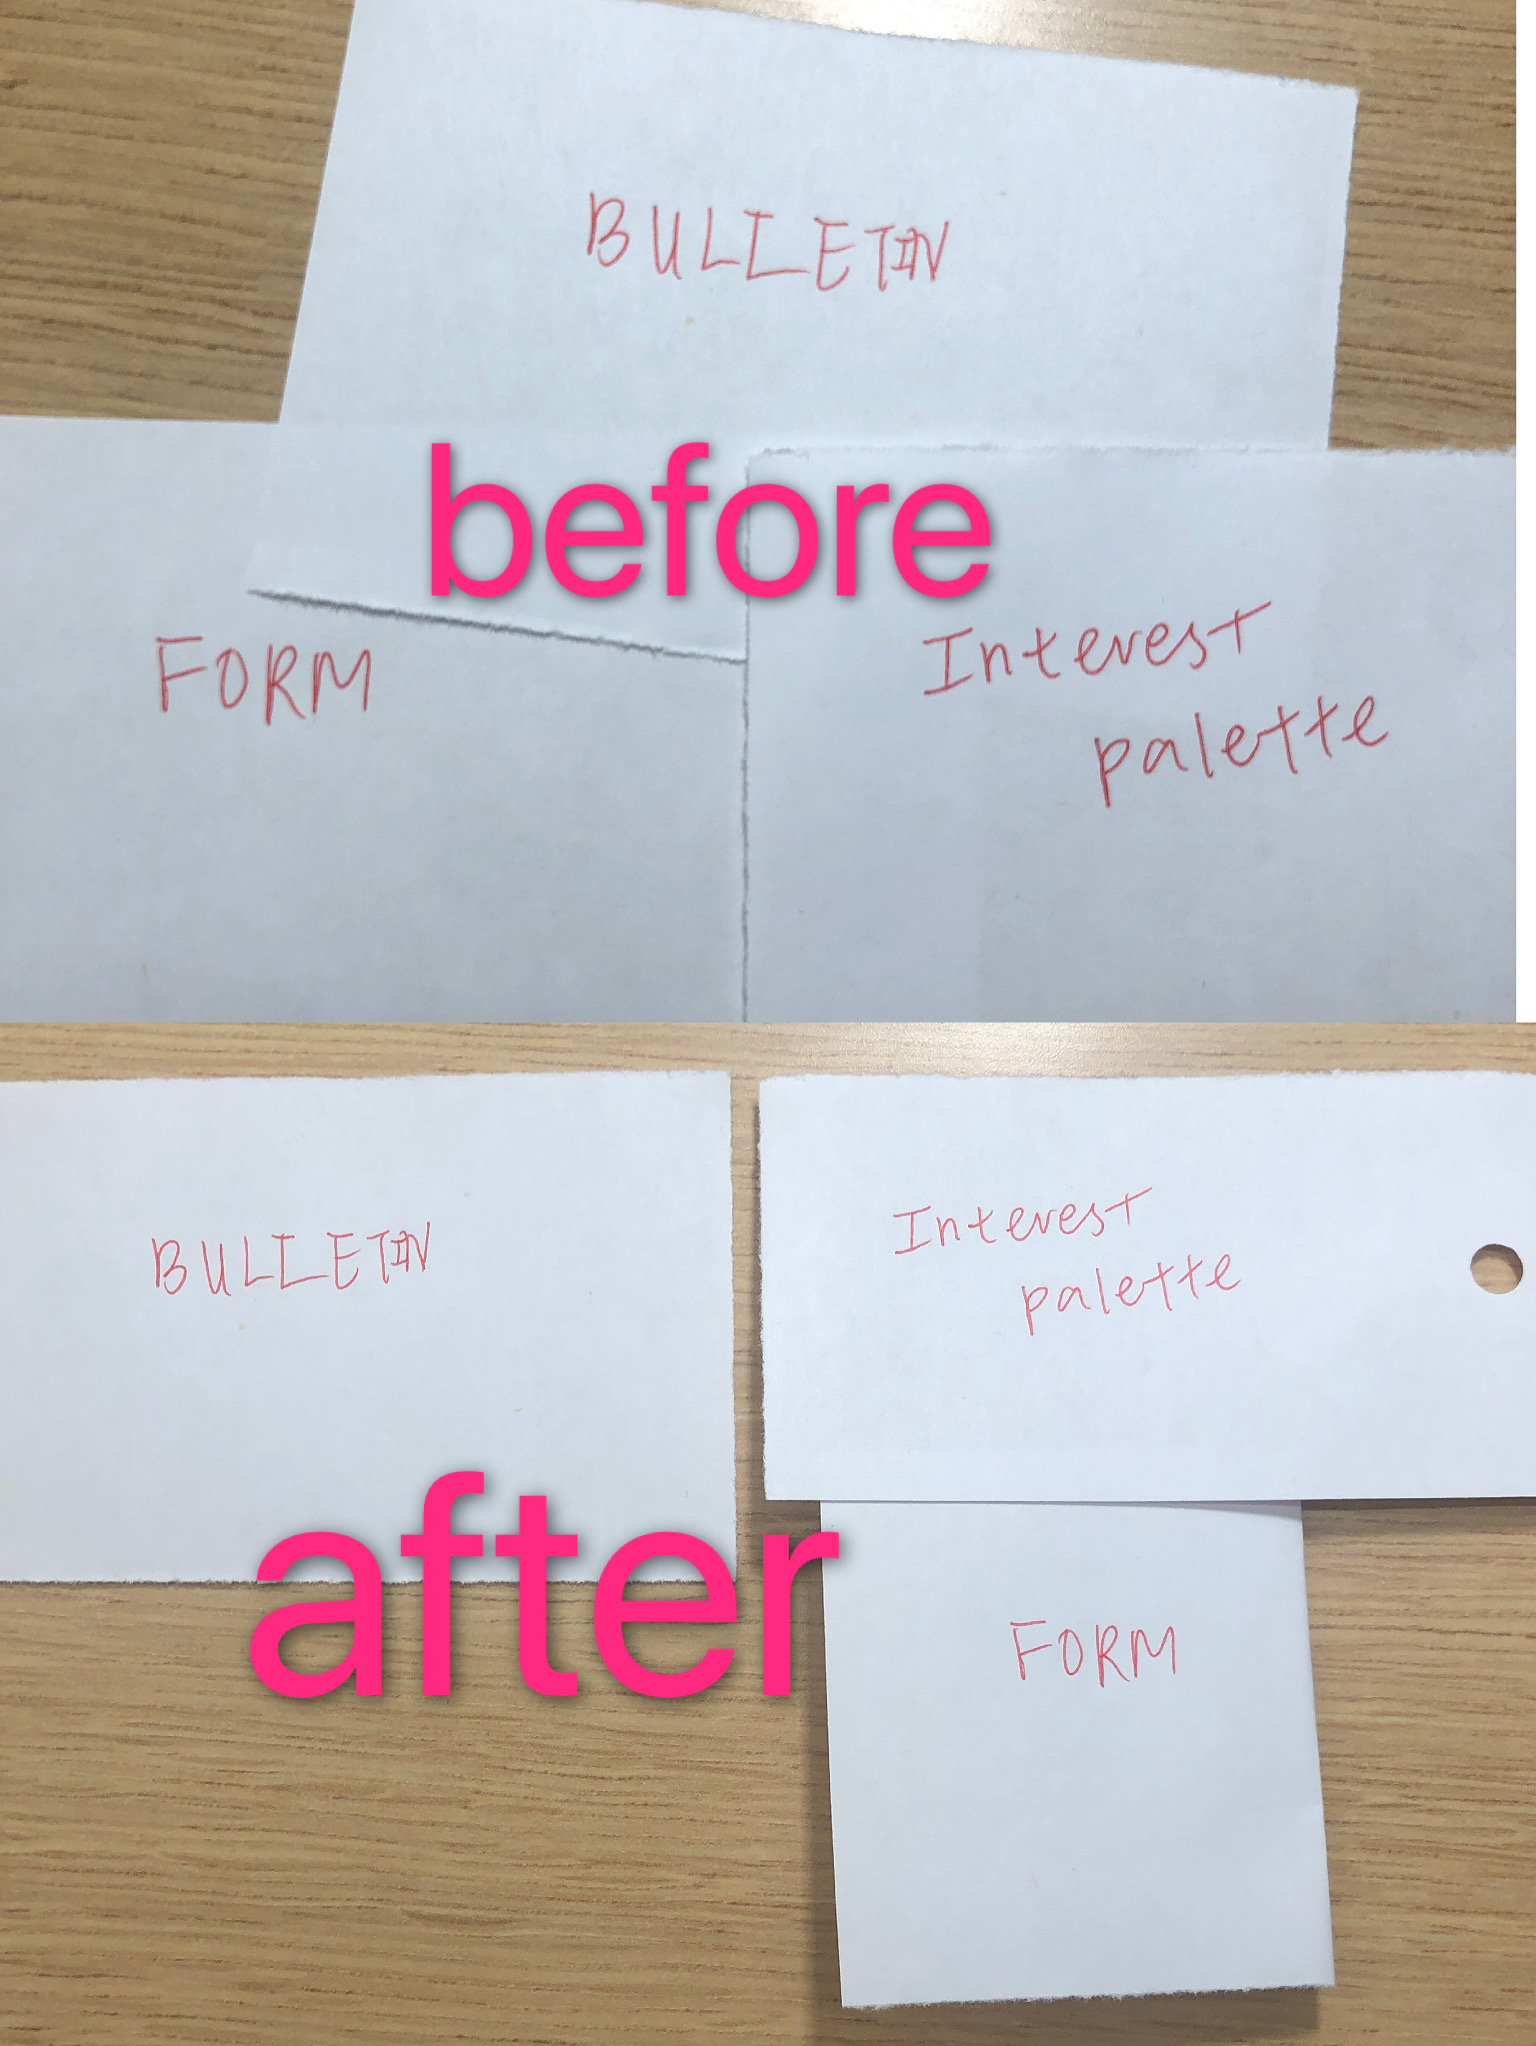 BULLETIN
before
FORM
Interest
palette
BULLETIN
Interest
palette
after
FORM